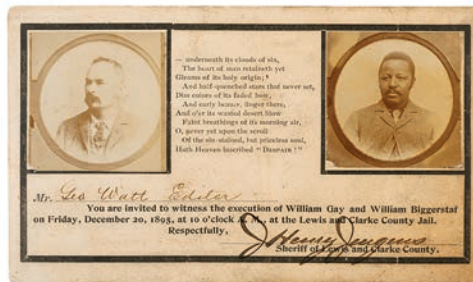 — underneath its clouds of sin,
The heart of man retaineth yet
Gleams of its holy origin;
And half-quenched stars that never set,
Dim colors of its faded bow,
And early beauty, linger there,
And o'er its wasted desert blow
Faint breathings of its morning air,
O, never yet upon the scroll
Of the sin-stained, but priceless soul,
Hath Heaven inscribed "DESPAIR!"
Mr. Geo Watt Editor
You are invited to witness the execution of William Gay and William Biggerstaf
on Friday, December 20, 1895, at 10 o'clock A. M., at the Lewis and Clarke County Jail.
Respectfully,
J Henry Jurgens
Sheriff of Lewis and Clarke County.